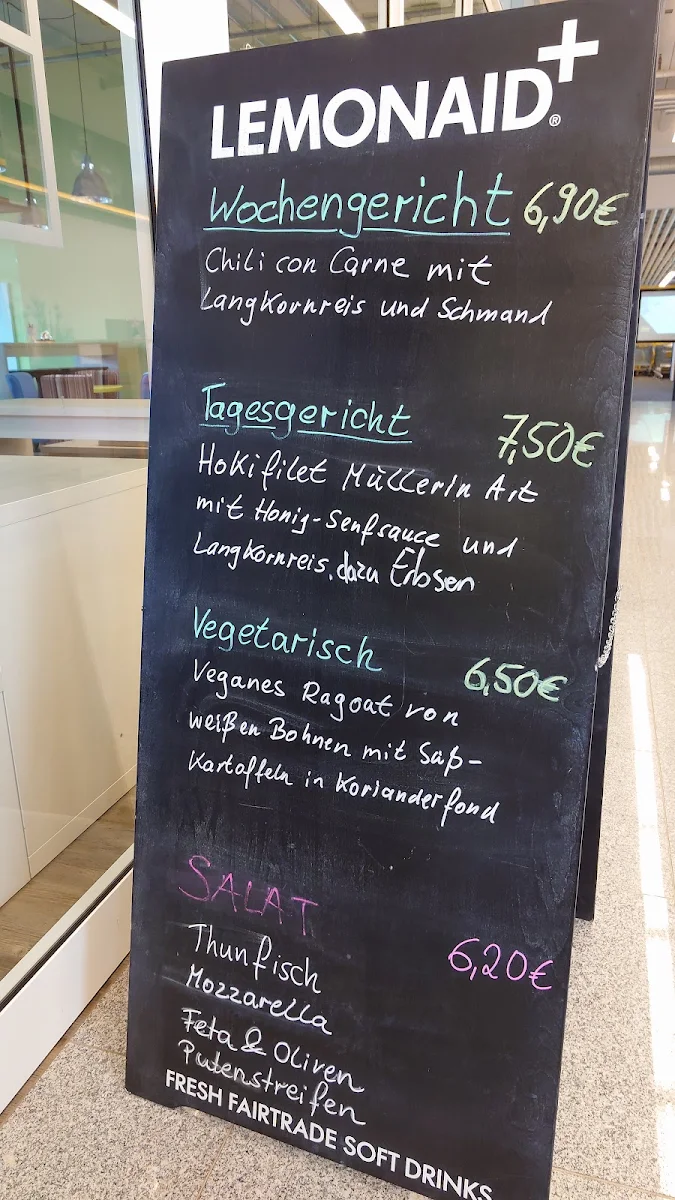 LEMONAID+®
Wochengericht 6,90€
Chili con Carne mit
Langkornreis und Schmand
Tagesgericht
7,50€
Hokifilet Müllerin Art
mit Honig-Senfsauce und
Langkornreis, dazu Erbsen
Vegetarisch
6,50€
Veganes Ragoat von
weißen Bohnen mit Saß-
Kartoffeln in Korianderfond
SALAT
6,20€
Thunfisch
Mozzarella
Feta & Oliven
Putenstreifen
FRESH FAIRTRADE SOFT DRINKS